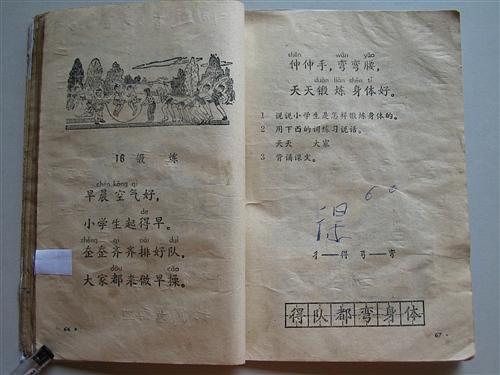 16 锻 炼
chén kōng qì
早晨空气好,
de
小学生起得早。
zhěng qí pái duì
整整齐齐排好队,
dōu cāo
大家都来做早操。
66
shēn wān yāo
伸伸手,弯弯腰,
duàn liàn shēn tǐ
天天锻炼身体好。
1 说说小学生是怎样锻炼身体的。
2 用下面的词练习说话。
天天 大家
3 背诵课文。
得
彳—得 弓—弯
得队都弯身体
67